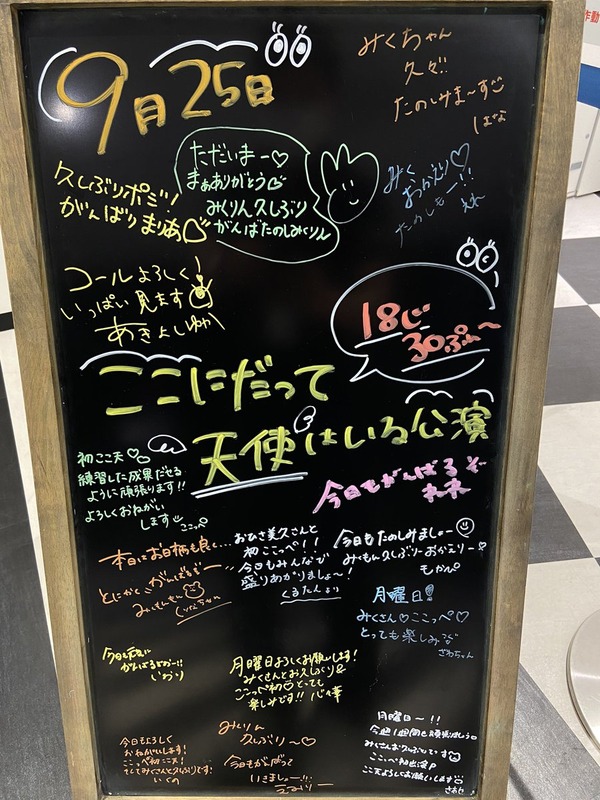 9月25日
みくちゃん
久々!!
たのしみま〜す
はな
ただいまー♡
まぁありがとう
みくりん久しぶり
がんばたのしみくりん
久しぶりポミツ
がんばりまりあ
みく
おかえり♡
たのしもー!!
コールよろしく!
いっぱい見ます
18じ
30ぷん〜
ここにだって
天使はいる公演
初ここ天♡
練習した成果だせる
ように頑張ります!!
よろしくおねがい
します
ここっぺ
今日もがんばるぞー
本日もお日柄も良く...
とにかくがんばるぞー
おひさ美久さんと
初ここっぺ!!
今日もみんなで
盛りあがりましょ〜!
くるたんより
今日もたのしみましょー
みくもん久しぶりーおかえりー♡
もかぺ
月曜日!
みくさん♡ここっぺ♡
とっても楽しみ
ざわちゃん
がんばるぞー!!
いおり
月曜日よろしくお願いします!
みくさんとお久しぶり&
ここっぺ初♡とっても
楽しみです!! 心々華
今日もよろしく
おねがいします!
ここっぺ初ここ天!
そしてみくさんと久しぶりです!
いくの
みくりん
久しぶり〜♡
今日もがんばって
いきましょー!!
月曜日〜!!
今週1週間も頑張りましょう
みくさんお久しぶりです
ここっぺ初出演♪
ここ天よろしくお願いします